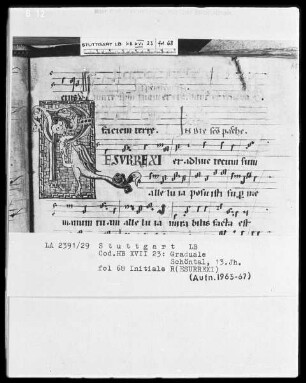 STUTTGART LB HB XVII 23 fol 68
faciem terre. In die sco pasche.
ESURREXI et adhuc tecum sum
alle lu ia posu isti sup me
manum tu am alle lu ia mira bilis facta est
LA 2391/29 Stuttgart LB
Cod.HB XVII 23: Graduale
Schöntal, 13.Jh.
fol 68 Initiale R(ESURREXI)
(Aufn.1963-67)